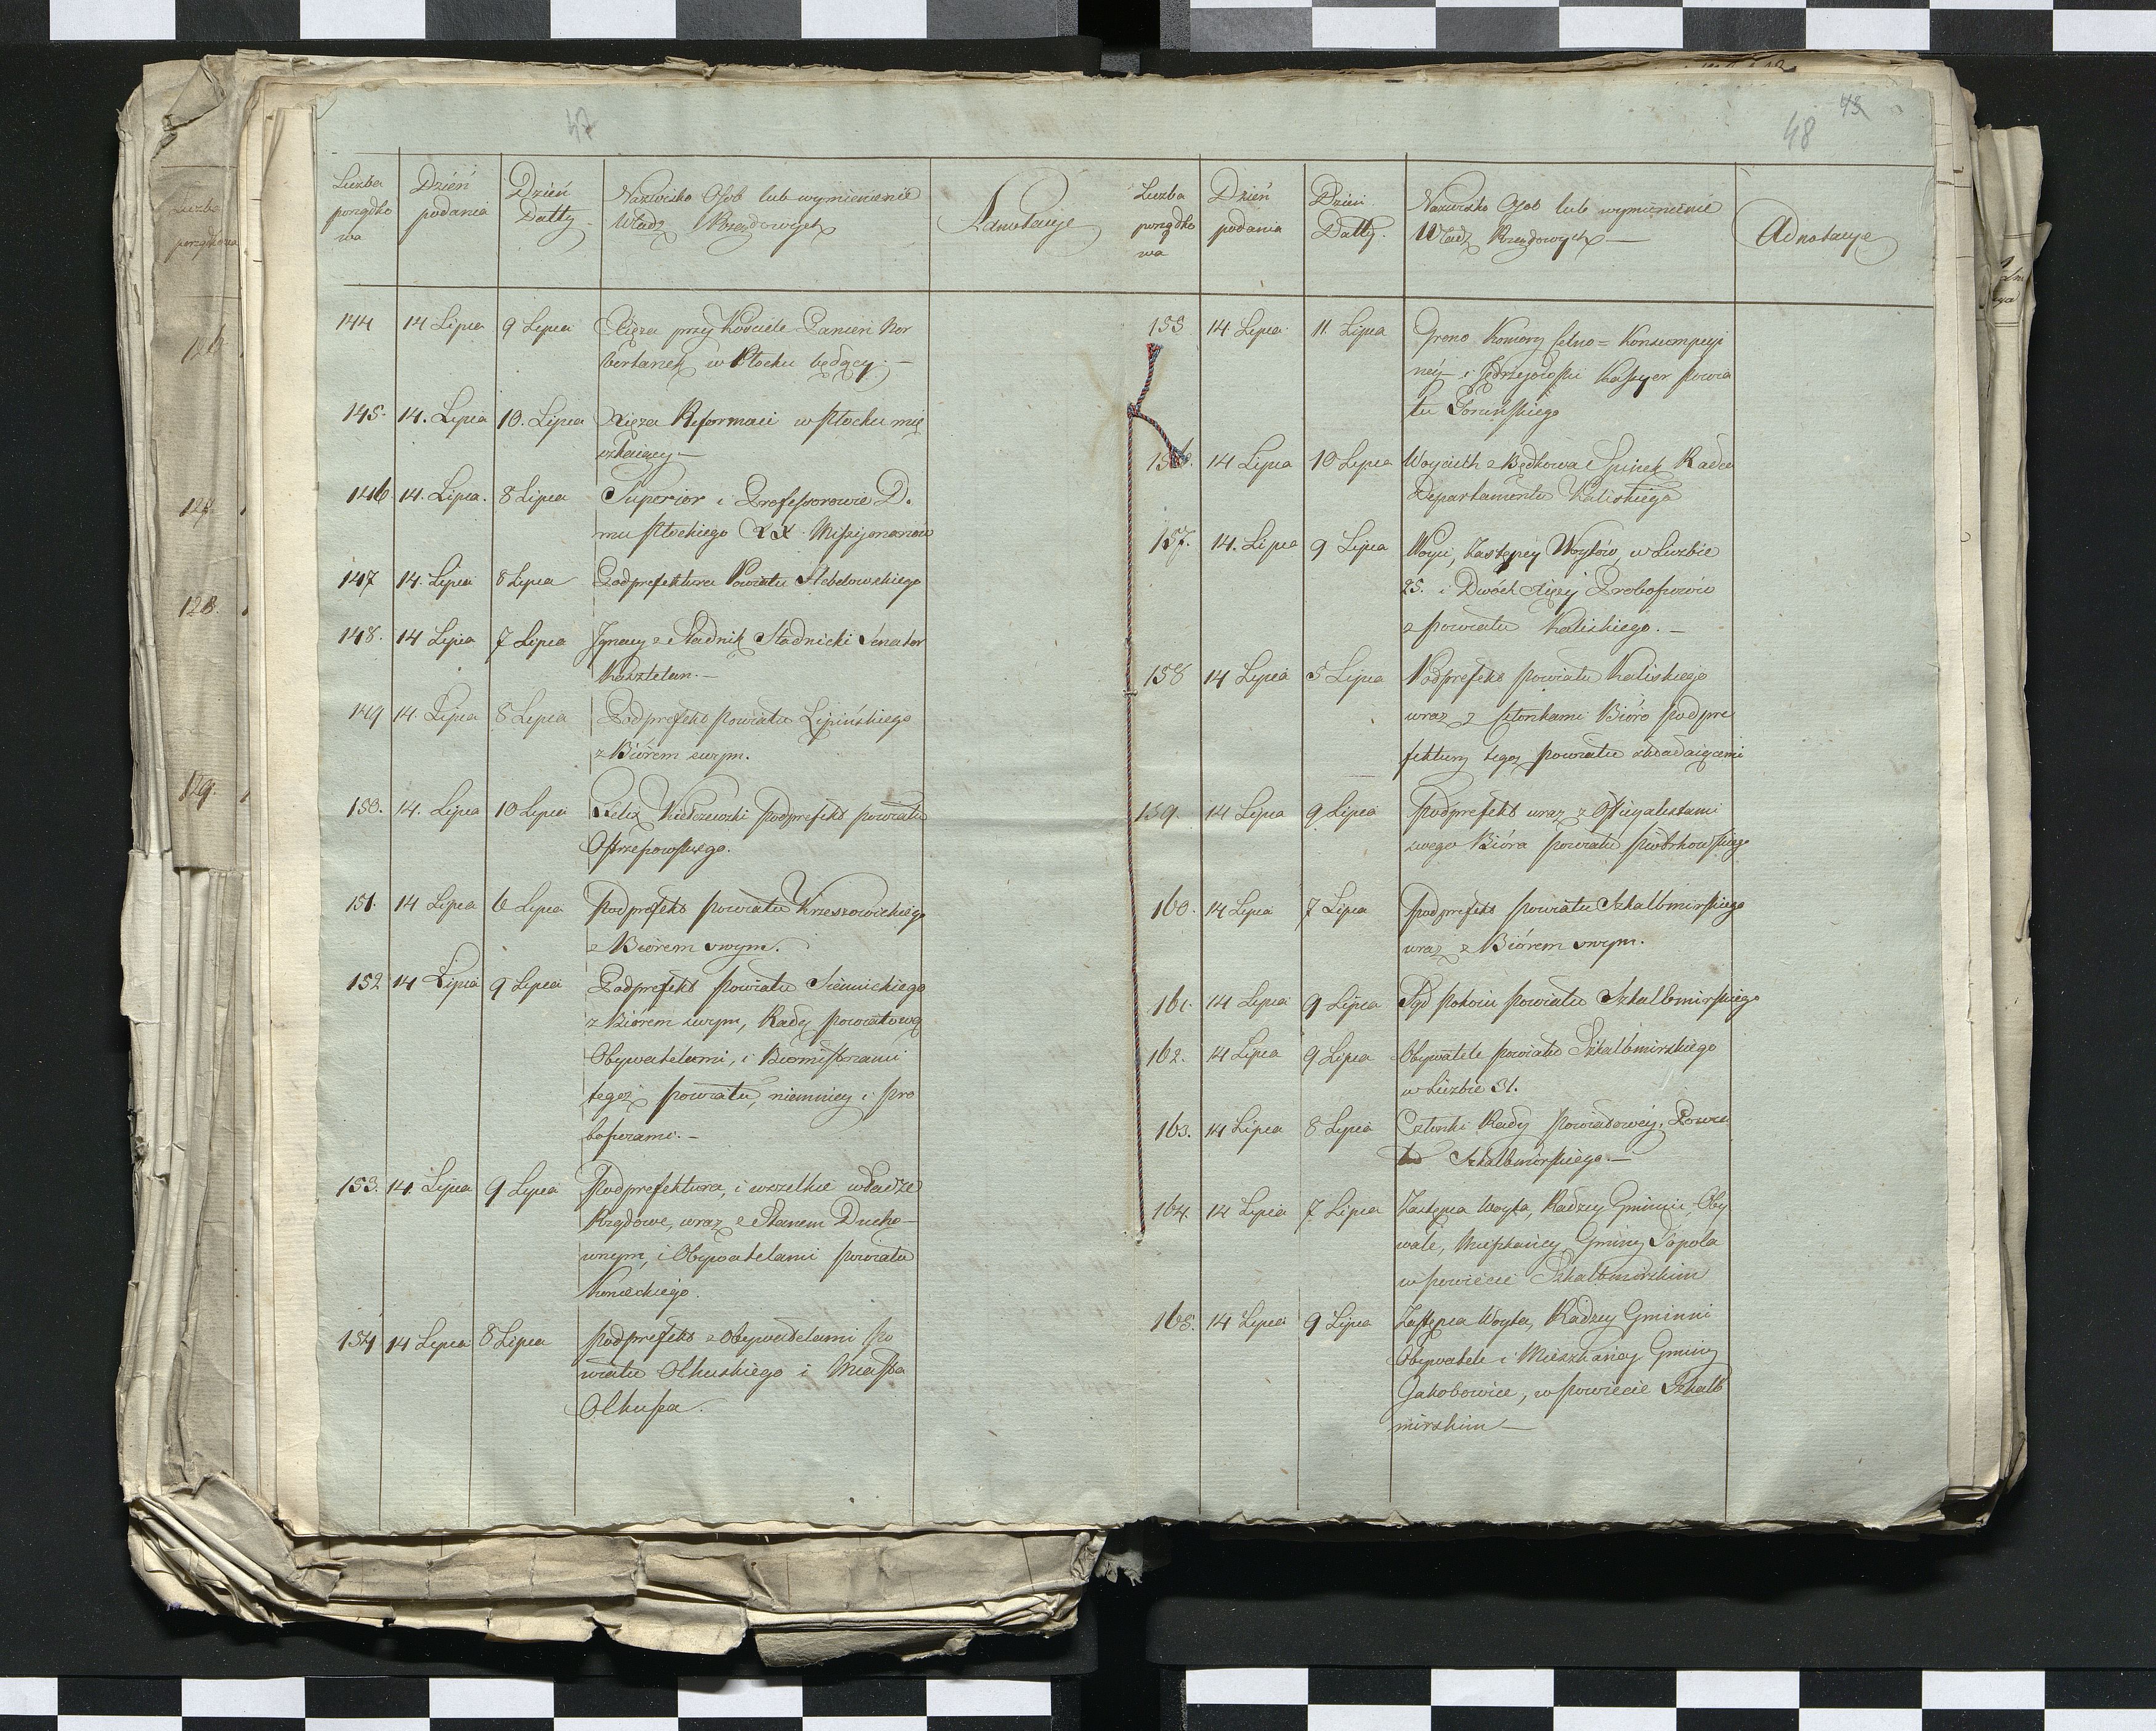 47
Liczba
porządko
wa
Dzień
podania
Dzień
Datty
Nazwisko Osob lub wymienienie
Władz Rządowych
Adnotacye
144 14 Lipca 9 Lipca Xięża przy Kościele Panien Nor
bertanek w Płocku będący.—
145. 14. Lipca 10. Lipca Xięża Reformaci w Płocku mię
szkaiący—
146 14. Lipca. 8 Lipca Superior i Professorowie Do
mu Płockiego XX Missyonarzów
147 14. Lipca 8 Lipca Podprefektura Powiatu Hebdowskiego
148. 14 Lipca 7 Lipca Ignacy z Stadnik Stadnicki Senator
Kasztelan.—
149 14. Lipca 8 Lipca Podprefekt Powiatu Lipińskiego
z Biórem swym.
150. 14. Lipca 10 Lipca Felix Kiełczewski Podprefekt powiatu
151. 14 Lipca 6 Lipca Podprefekt powiatu Krzeszowickiego
z Biórem swym.
152 14 Lipca 9 Lipca Podprefekt Powiatu Siennickiego
z Biórem swym, Radą powiatową
Obywatelami, i Burmistrzami
tegoż powiatu, niemniey i Pro
boszczami.—
153. 14. Lipca 9 Lipca Podprefektura, i wszelkie władze
Rządowe, wraz z Stanem Ducho-
wnym, i Obywatelami powiatu
Koneckiego.
154 14 Lipca 8 Lipca Podprefekt z Obywatelami Po
wiatu Olkuskiego i Miasta
Olkusza.
43
48
Liczba
porządko
wa
Dzień
podania
Dzień
Datty.
Nazwisko Osob lub wymienienie
Władz Rządowych—
Adnotacye
155 14 Lipca 11. Lipca Grono Komory Celno= Konsumpcyi
néy i Jędrzejowski Kassyer Powia
tu Toruńskiego
156. 14 Lipca 10 Lipca Woyciech z Będkowa Radca
Departamentu Kaliskiego
157. 14. Lipca 9 Lipca Woyci, Zastępcy Woytów, w Liczbie
25. i Dwóch Xięży Proboszczów
z powiatu Kaliskiego.—
158 14 Lipca 5 Lipca Podprefekt powiatu Kaliskiego
wraz z Członkami Bióro Podpre
fektury tegoż powiatu składaiącemi
159. 14 Lipca 9 Lipca Podprefekt wraz z Officyalistami
swego Bióra powiatu Piotrkowskiego
160. 14 Lipca 7 Lipca Podprefekt powiatu Szkalbmirskiego
wraz z Biórem swym.
161. 14 Lipca 9 Lipca Sąd Pokoiu powiatu Szkalbmirskiego
162. 14 Lipca 9 Lipca Obywatele powiatu Szkalbmirskiego
w Liczbie 31.
163. 14 Lipca 8 Lipca Członki Rady Powiatowéy, Powia
tu Szkalbmirskiego.—
164. 14 Lipca 7 Lipca Zastępca Woyta, Radzcy Gminni, Oby
wate, Mieszkańcy Gminy Topola
w powiecie Szkalbmirskim
165. 14 Lipca 9 Lipca Zastępca Woyta, Radzcy Gminni
Obywatele i Mieszkańcy Gminy
Jakobowice, w powiecie Szkalb
mirskim—
Liczba
porządkowa
126
127
128.
129.